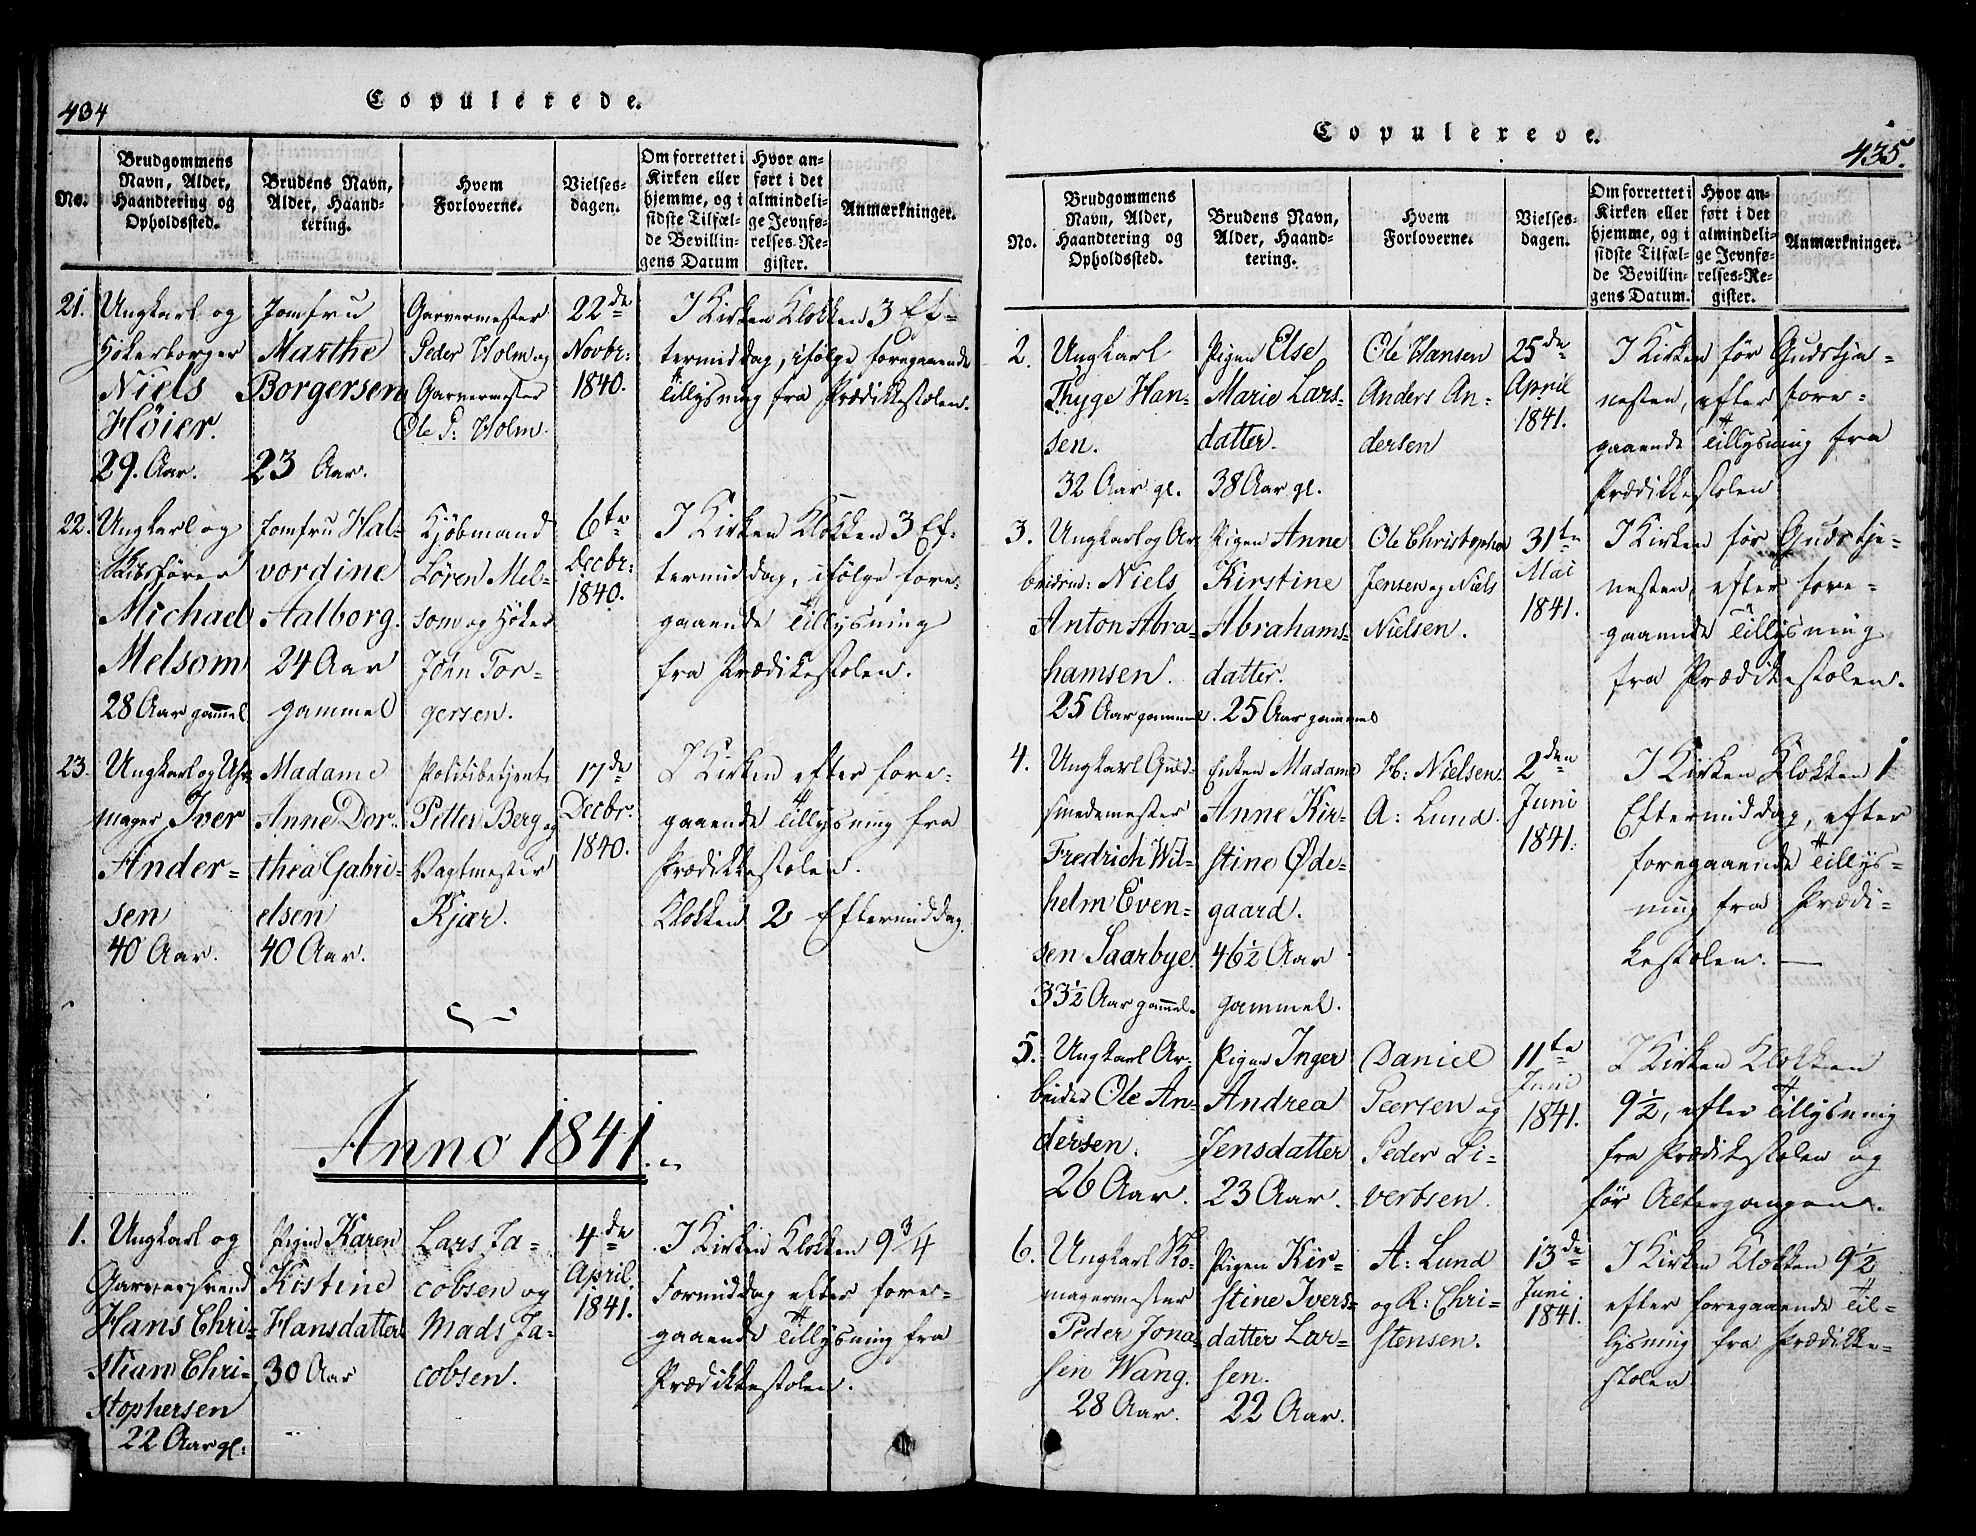 434
Copulerede.
No.
Brudgommens
Navn, Alder,
Haandtering og
Opholdssted.
Brudens Navn,
Alder, Haand-
tering.
Hvem
Forloverne.
Vielses-
dagen.
Om forrettet i
Kirken eller
hjemme, og i
sidste Tilfæl-
de Bevillin-
gens Datum
Hvor an-
ført i det
almindeli-
ge Jevnfø-
relses-Re-
gister.
Anmærkninger.
21.
Ungkarl og
Høkerborger
Niels
Høier.
29. Aar.
Jomfru
Marthe
Borgersen
23 Aar.
Garvermester
Peder Holm og
Garvermester
Ole P: Holm.
22de
Novbr:
1840.
I Kirken Klokken 3 Ef-
termiddag, ifølge foregaaende
Tillysning fra Prædikkestolen.
22.
Ungkarl og
Skibsfører
Michael
Melsom
28 Aar gammel
Jomfru Hal-
vordine
Aalborg.
24 Aar
gammel
Kjøbmand
Søren Mel-
som og Høker
John Tor-
gersen.
6te
Decbr:
1840.
I Kirken Klokken 3 Ef-
termiddag, ifølge fore-
gaaende Tillysning
fra Prædikestolen.
23.
Ungkarl og Uhr-
mager Iver
Ander-
sen
40 Aar.
Madame
Anne Dor-
thea Gabri-
elsen
40 Aar.
Politibetjent
Petter Berg og
Vagtmester
Kjær.
17de
Decbr.
1840.
I Kirken efter fore-
gaaende Tillysning fra
Prædikkestolen.
Klokken 2 Eftermiddag.
Anno 1841.
1.
Ungkarl og
Garversvend
Hans Chri-
stian Chri-
stophersen
22 Aar gl:
Pigen Karen
Kistine
Hansdatter
30 Aar
Lars Ja-
cobsen og
Mads Ja-
cobsen.
4de
April.
1841.
I Kirken Klokken 9 3/4
Formiddag efter fore-
gaaende Tillysning fra
Prædikkestolen.
435.
Copulerede.
No.
Brudgommens
Navn, Alder,
Haandtering og
Opholdssted.
Brudens Navn,
Alder, Haand-
tering.
Hvem
Forloverne.
Vielses-
dagen.
Om forrettet i
Kirken eller
hjemme, og i
sidste Tilfæl-
de Bevillin-
gens Datum.
Hvor an-
ført i det
almindeli-
ge Jevnfø-
relses-Re-
gister.
Anmærkninger.
2.
Ungkarl
Thyge Han-
sen.
32 Aar gl.
Pigen Else
Marie Lars-
datter.
38 Aar gl.
Ole Hansen
Anders An-
dersen
25de
April
1841.
I Kirken før Gudstje-
nesten, efter fore-
gaaende Tillysning fra
Prædikkestolen
3.
Ungkarl og Ar-
beidsm: Niels
Anton Abra-
hamsen.
25 Aar gammel.
Pigen Anne
Kirstine
Abrahams-
datter.
25 Aar gammel
Ole Christopher
Jensen og Niels
Nielsen.
31te
Mai
1841.
I Kirken før Gudstje-
nesten, efter fore-
gaaende Tillysning
fra Prædikkestolen.
4.
Ungkarl Guld-
smedemester
Fredrich Wil-
helm Even-
sen Saarbye.
33 1/2 Aar gammel.
Enken Madame
Anne Kir-
stine Øde-
gaard.
46 1/2 Aar
gammel.
H: Nielsen.
A: Lund.
2den
Juni
1841.
I Kirken Klokken 1
Eftermiddag, efter
foregaaende Tillys-
ning fra Prædi-
kestolen.
5.
Ungkarl Ar-
beider Ole An-
dersen.
26 Aar.
Pigen Inger
Andrea
Jensdatter
23 Aar.
Daniel
Peersen og
Peder Si-
vertsen.
11te
Juni
1841.
I Kirken Klokken
9 1/2, efter Tillysning
fra Prædikestolen og
før Altergangen.
6.
Ungkarl Ko-
magermester
Peder Jona-
sen Wang.
28 Aar.
Pigen Kir-
stine Ivers-
datter Lar-
sen.
22 Aar.
A: Lund
og R: Chri-
stensen.
13de
Juni.
1841.
I Kirken Klokken 9 1/2
efter foregaaende Til-
lysning fra Prædikke-
stolen